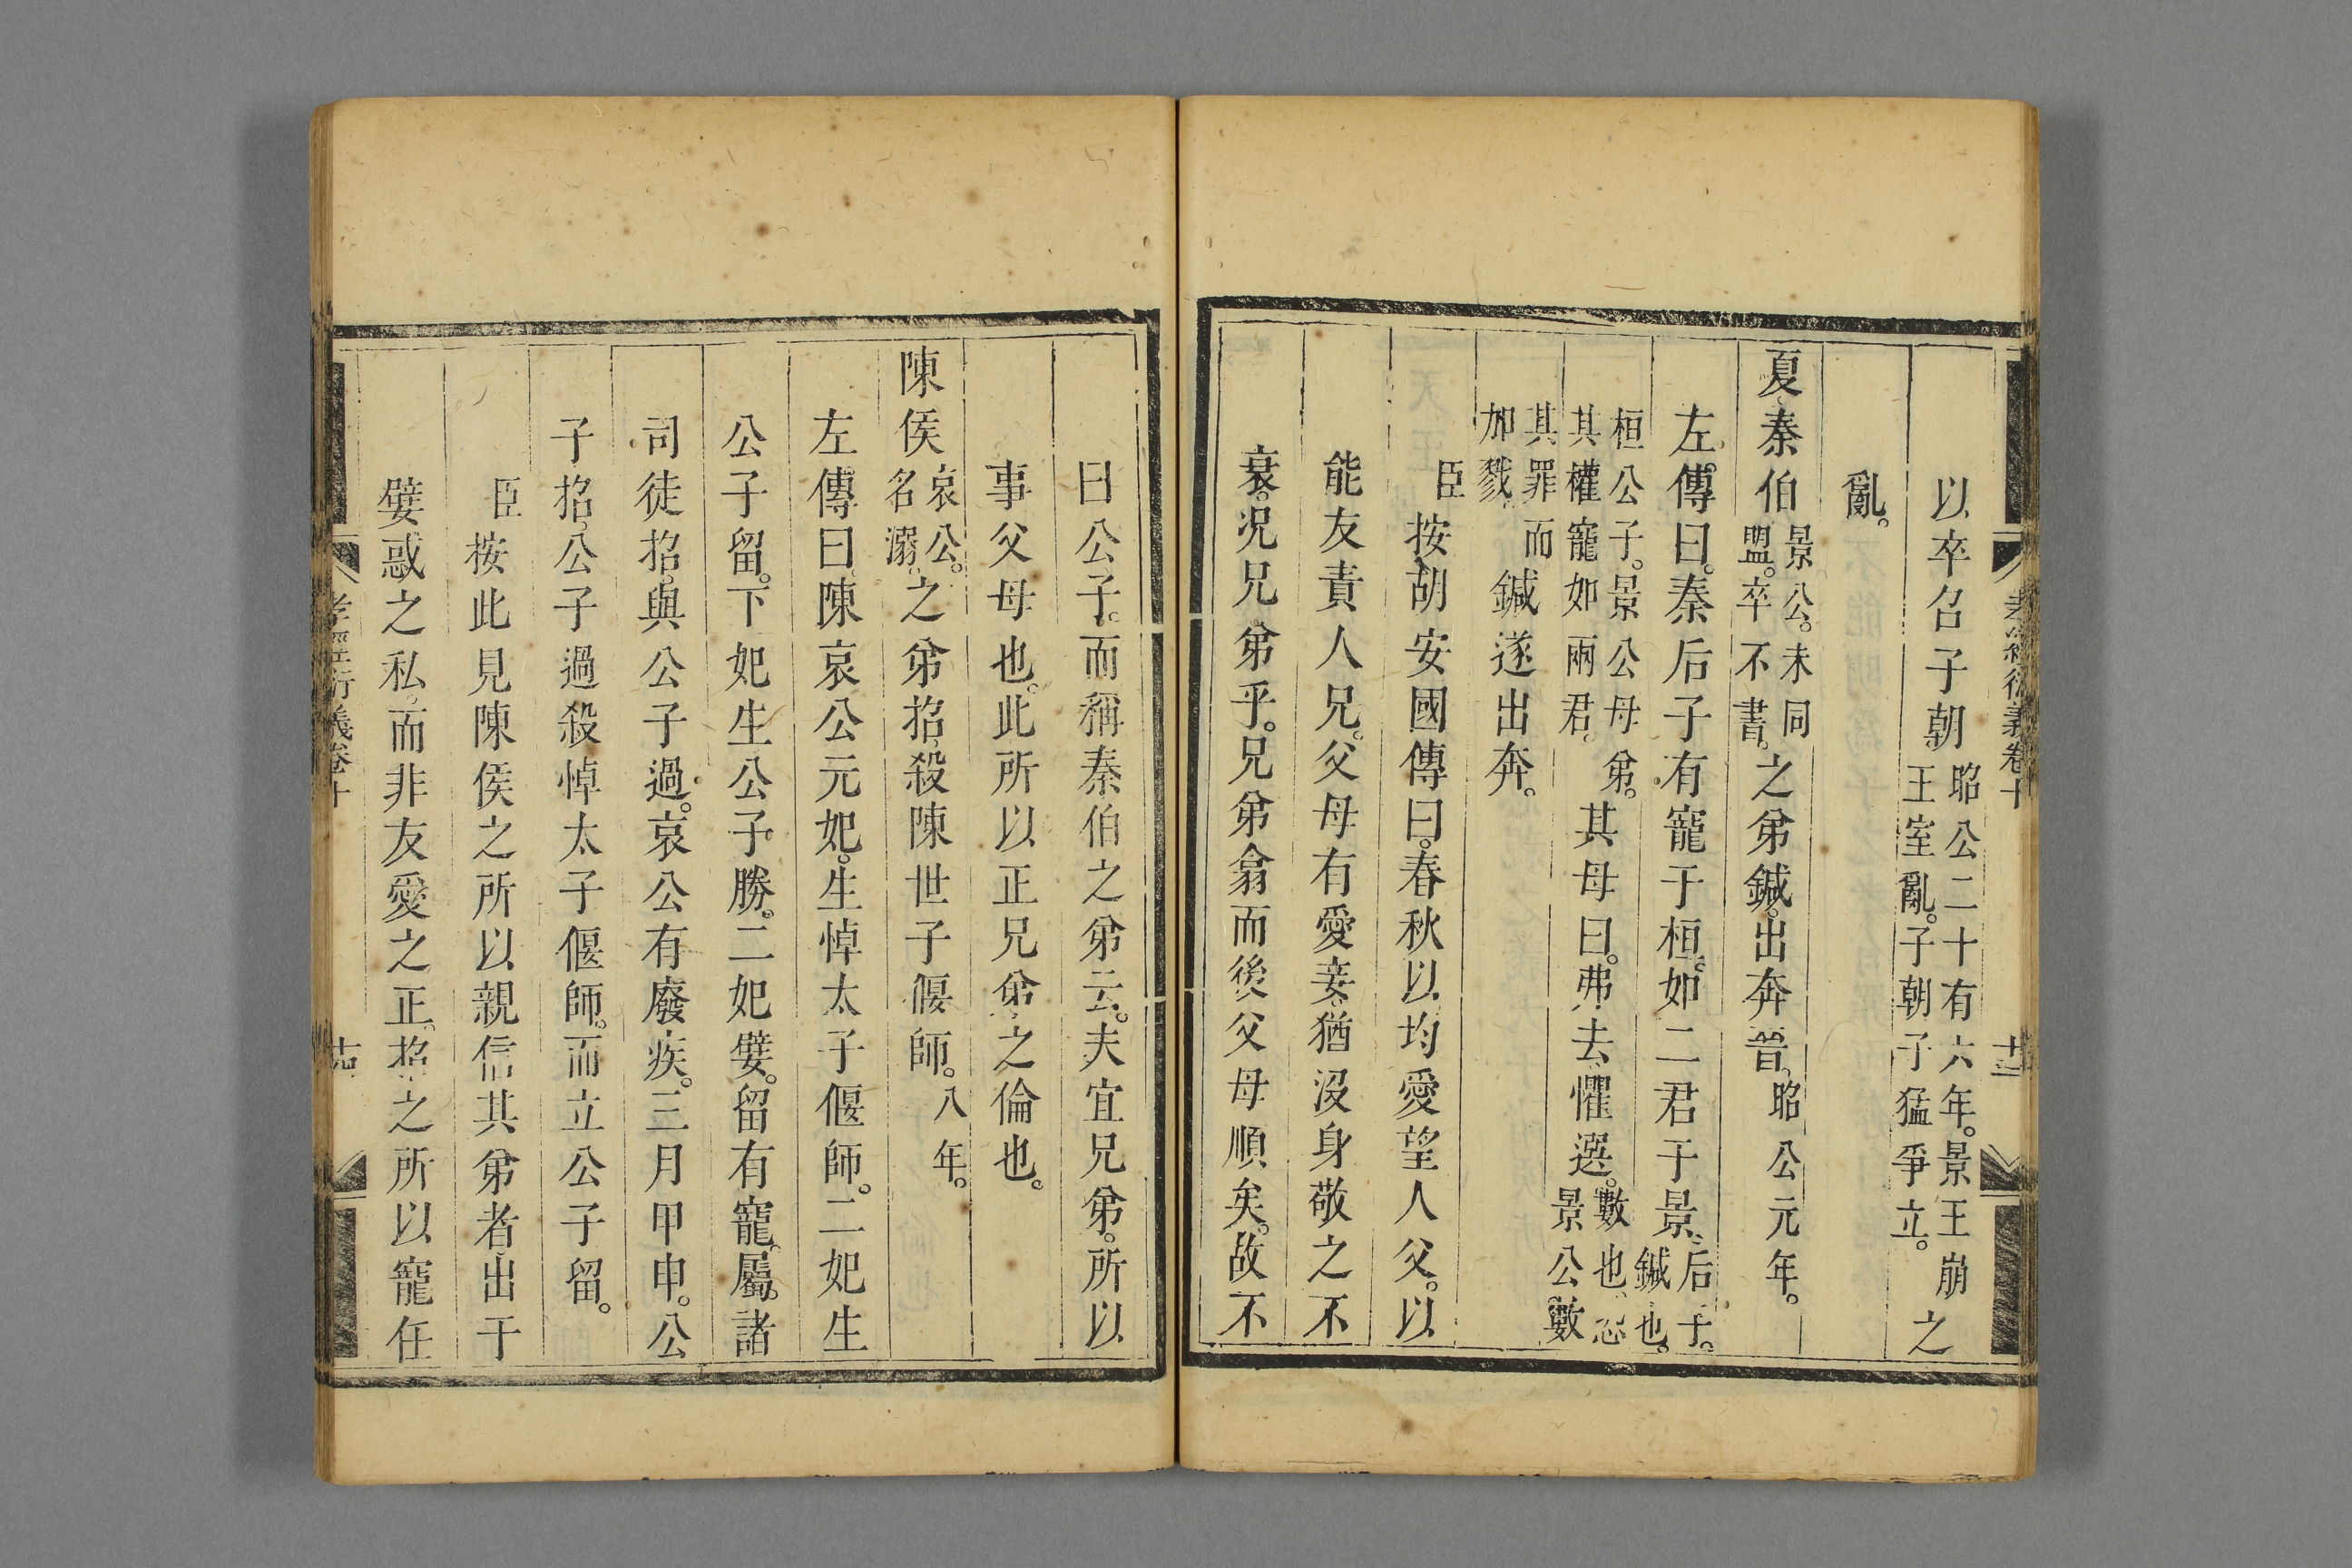 孝經衍義卷十
十三
以卒召子朝昭公二十有六年。景王崩王室亂。子朝子猛爭立。之
亂。
夏秦伯景公。未同盟。卒不書。之弟鍼。出奔晉。昭公元年。
左傳曰。秦后子有寵于桓。如二君于景。后子。鍼也。
桓公子。景公母弟。其權寵如兩君。其母曰。弗去懼選。數也、恐景公數
其罪而加戮。鍼遂出奔。
臣按胡安國傳曰。春秋以均愛望人父。以
能友責人兄。父母有愛妾。猶沒身敬之不
衰。況兄弟乎。兄弟翕而後父母順矣。故不
曰公子。而稱秦伯之弟云。夫宜兄弟。所以
事父母也。此所以正兄弟之倫也。
陳侯哀公。名溺。之弟招。殺陳世子偃師。八年。
左傳曰陳哀公元妃。生悼太子偃師。二妃生
公子留。下妃生公子勝。二妃嬖。留有寵。屬。諸
司徒招。與公子過。哀公有廢疾。三月甲申。公
子招。公子過殺悼太子偃師。而立公子留。
臣按此見陳侯之所以親信其弟者出于
嬖惑之私。而非友愛之正。招之所以寵任
孝經衍義卷十
十四